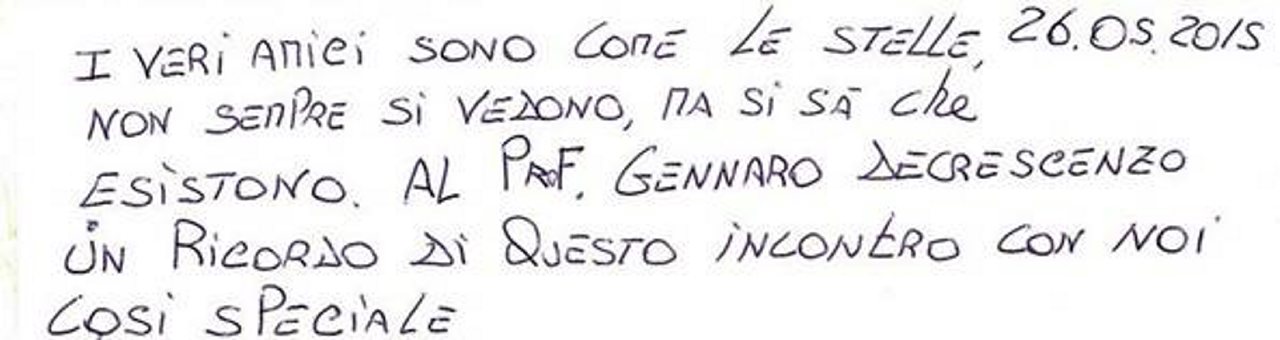 I VERi AMiCi SONO COME LE STELLE, 26.05.2015
NON SEMPRE Si VEDONO, MA Si SÀ che
ESiSTONO. AL PROF. GENNARO DECRESCENZO
UN RiCORDO Di QUESTO iNCONtRO CON NOi
COSi SPECiALE